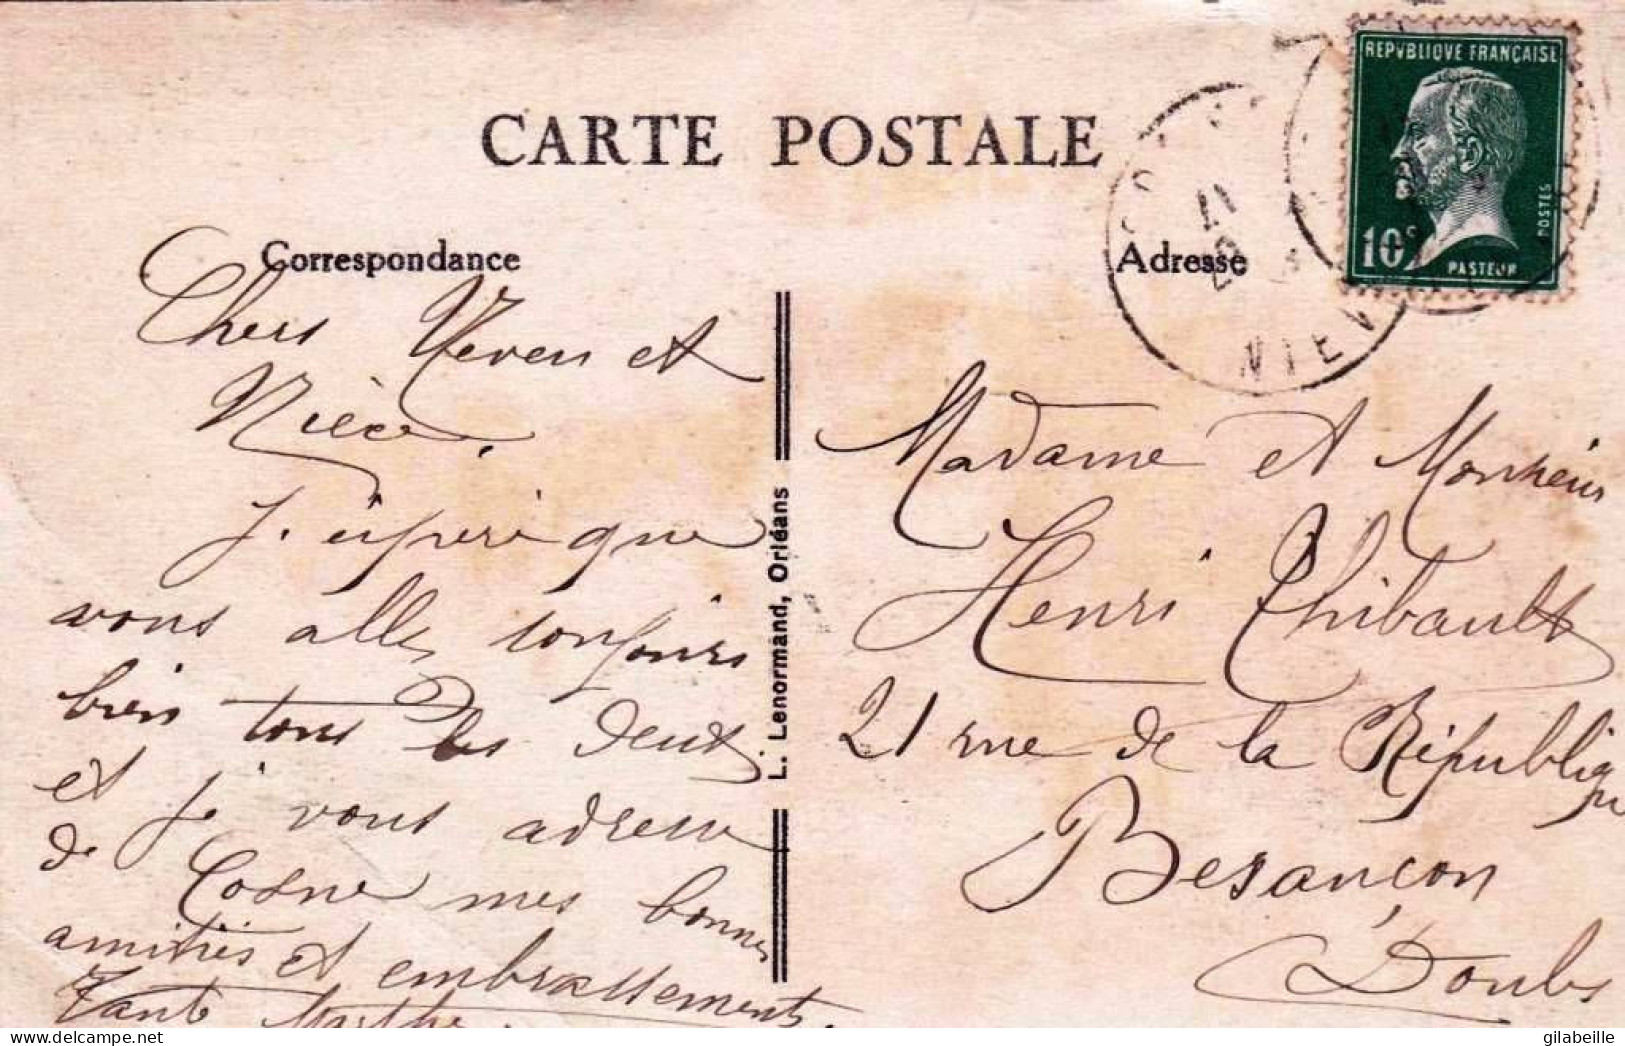 CARTE POSTALE
Correspondance
Adresse
REPVBLIQVE FRANÇAISE
10c
POSTES
PASTEUR
NIEV
17
20
Chers Neveu et
Nièce.
J'espère que
vous allez toujours
bien tous les deux
et je vous adresse
de Cosne mes bonnes
amitiés et embrassements.
Tante Marthe.
L. Lenormand, Orléans
Madame et Monsieur
Henri Thibault
21 rue de la République
Besançon
Doubs
gilabeille